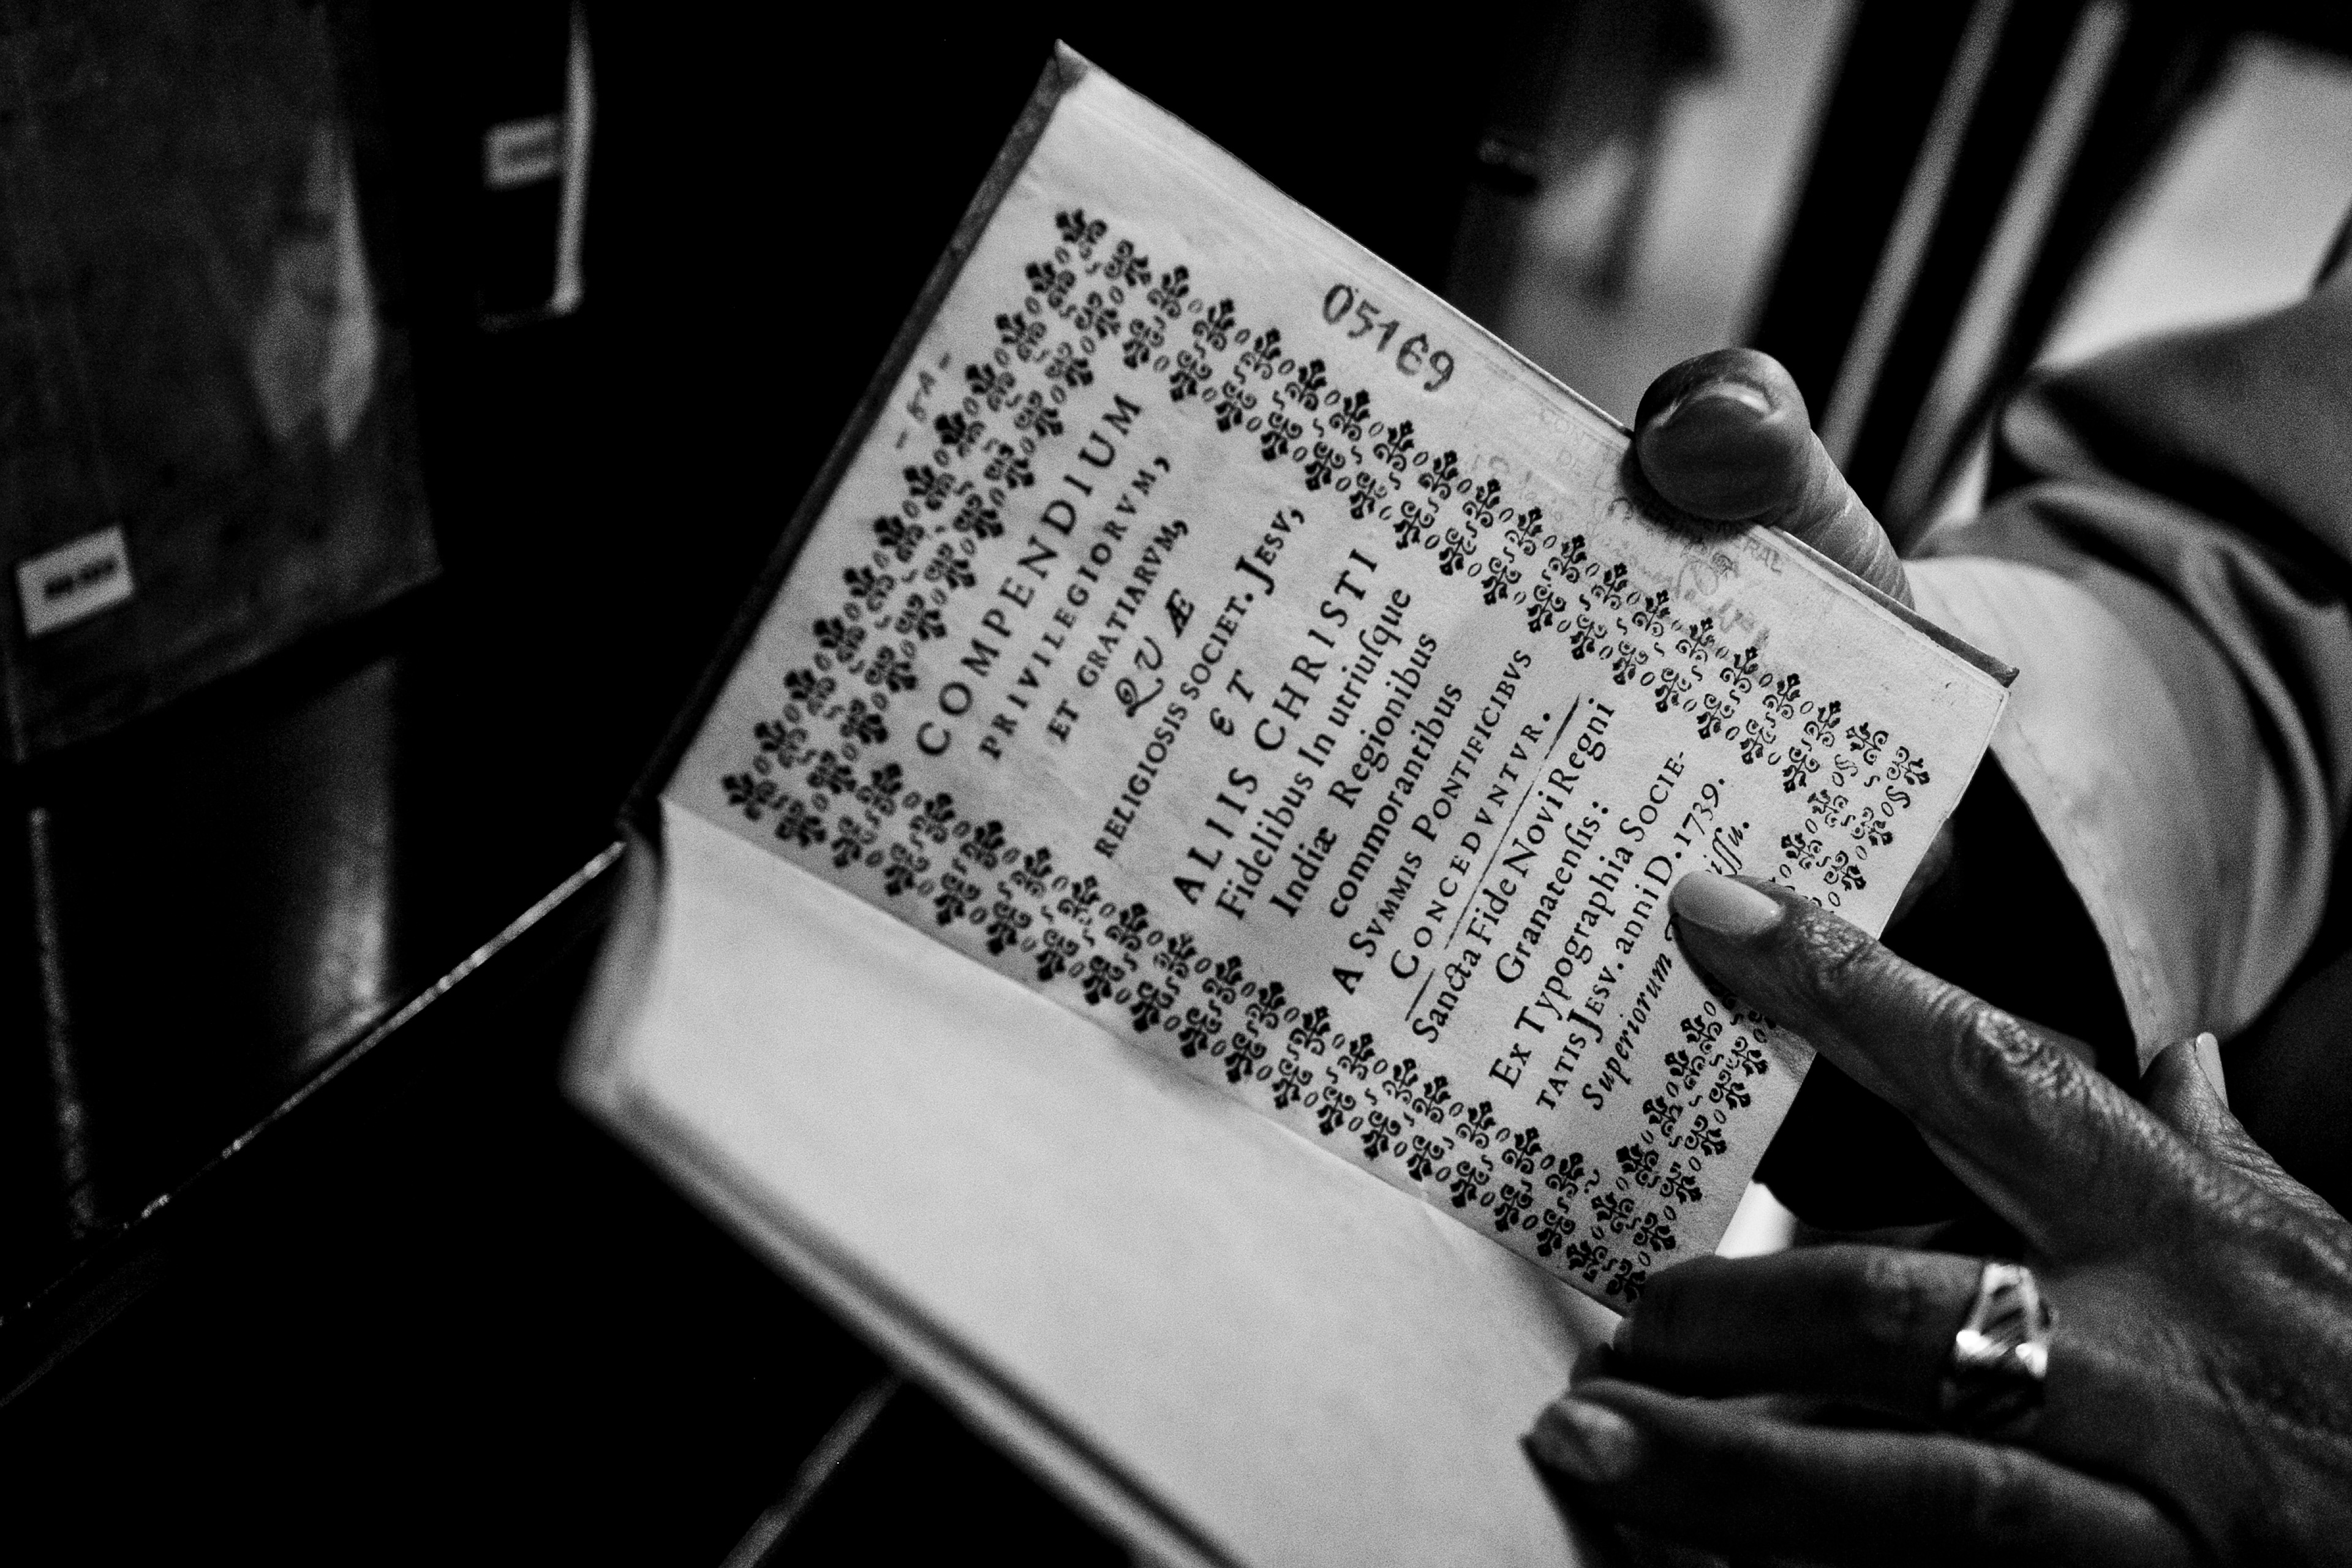 05169
COMPENDIUM
PRIVILEGIORVM,
ET GRATIARVM,
QVÆ
RELIGIOSIS SOCIET. JESV,
ET
ALIIS CHRISTI
Fidelibus In utriuſque
Indiæ Regionibus
commorantibus
A SVMMIS PONTIFICIBVS
CONCEDVNTVR.
Sancta Fide Novi Regni
Granatenſis:
Ex Typographia SOCIE-
TATIS JESV. anni D. 1739.
Superiorum